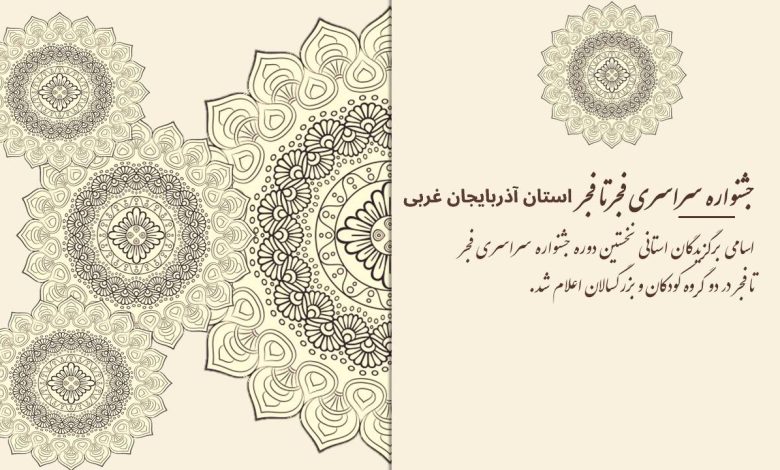 جشنواره سراسری فجر تا فجر استان آذربایجان غربی
اسامی برگزیدگان استانی نخستین دوره جشنواره سراسری فجر
تا فجر در دو گروه کودکان و بزرگسالان اعلام شد.